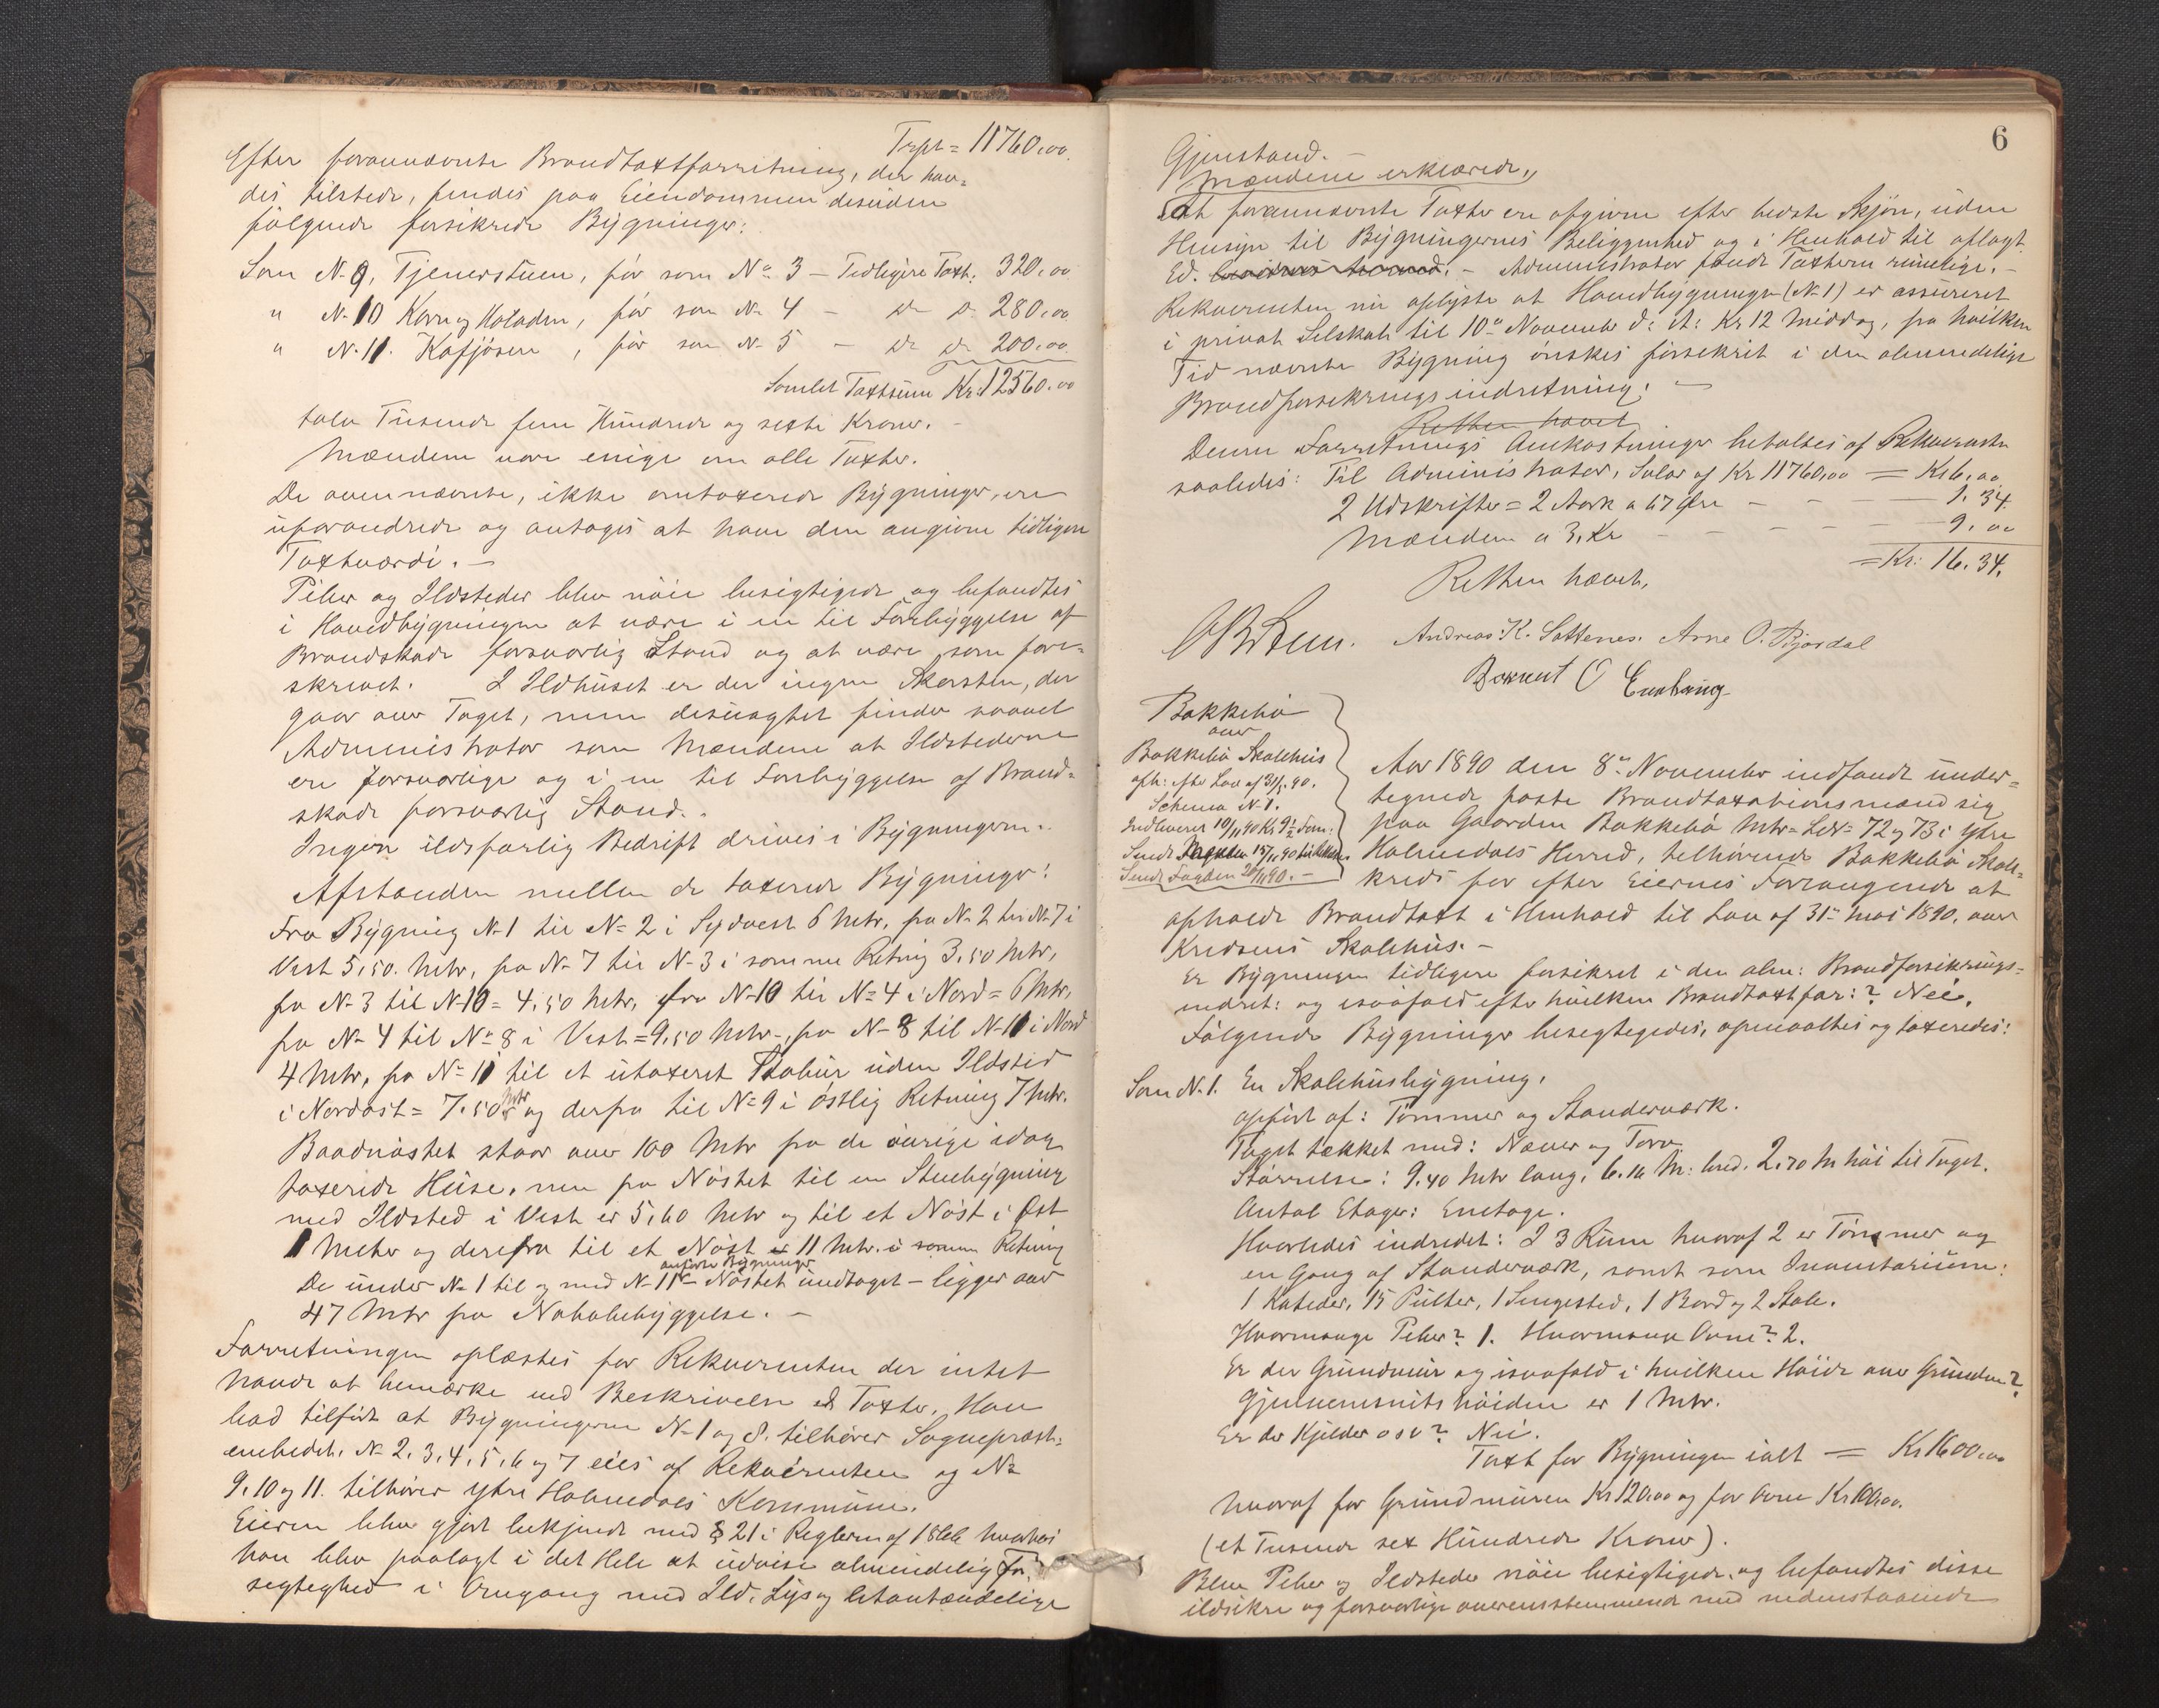 Trspt = 11760,00.
Efter forannævnte Brandtaxtforretning, der hav-
des tilstede, findes paa Eiendommen desuden
følgende forsikrede Bygninger:
Som N. 9, Tjenerstuen, før som No 3 – Tidligere Taxt: 320,00
" N. 10 Korn og Høladen, før som N. 4 – Do Do 280,00
" N. 11. Kofjøsen, før som N. 5 – Do Do 200,00
Samlet Taxtsum Kr: 12560.00
tolv Tusende fem Hundrede og sexti Kroner. –
Mændene vare enige om alle Taxter.
De ovennævnte, ikke omtaxerede Bygninger, ere
uforandrede og antages at have den angivne tidligere
Taxtværdi. –
Piber og Ildsteder blev nöie besigtigede og befandtes
i Hovedbygningen at være i en til Forebyggelse af
Brandskade forsvarlig Stand og at være som fore-
skrevet. I Ildhuset er der ingen Skorsten, der
gaar over Taget, men desuagtet finder saavel
Administrator som Mændene at Ildstederne
ere forsvarlige og i en til Forebyggelse af Brand-
skade forsvarlig Stand. .
Ingen ildsfarlig Bedrift drives i Bygningerne.
Afstanden mellem de taxerede Bygninger:
Fra Bygning N. 1 til N. 2 i Sydvest 6 Mtr, fra N. 2 til N. 7 i
Vest 5,50. Mtr, fra N. 7 til N. 3 i samme Retning 3,50 Mtr,
fra N. 3 til N. 10 = 4,50 Mtr, fra N. 10 til N. 4 i Nord = 6 Mtr,
fra N. 4 til N. 8 i Vest = 9,50 Mtr, fra N. 8 til N. 11 i Nord
4 Mtr, fra N. 11 til et utaxeret Stabur uden Ildsted
i Nordost = 7,50 Mtr og derfra til N. 9 i östlig Retning 7 Mtr.
Baadnöstet staar over 100 Mtr fra de övrige idag
taxerede Huse, men fra Nöstet til en Stuebygning
med Ildsted i Vest er 5,60 Mtr og til et Nöst i Öst
1 Meter og derfra til et Nöst er 11 Mtr. i samme Retning
anførte Bygninger
De under N. 1 til og med N. 11 – Nöstet undtaget – ligger over
47 Mtr fra Nabobebyggelse. –
Forretningen oplæstes for Rekvirenten der intet
havde at bemærke ved Beskrivelse og Taxter. Han
bad tilført at Bygningerne N. 1 og 8. tilhører Sognepræst-
embedet, N. 2, 3, 4, 5, 6 og 7 eies af Rekvirenten og No
9, 10 og 11. tilhører ytre Holmedals Kommune.
Eieren blev gjort bekjendt med § 21 i Reglerne af 1846 hvorhos
han blev paalagt i det Hele at udvise almindelig For-
sigtighed i Omgang med Ild, Lys og letantændelige
6
Gjenstand. –
Mændene erklærede,
at forannævnte Taxter ere afgivne efter bedste Skjön, uden
Hensyn til Bygningernes Beliggenhed og i Henhold til aflagt
Ed. – Administrator fandt Taxterne rimelige. –
Rekvirenten nu oplyste at Hovedbygningen (N. 1) er assureret
i privat Selskab til 10de November d: A: Kl 12 Middag, fra hvilken
Tid nævnte Bygning önskes forsikret i den almindelige
Brandforsikringsindretning. –
Retten hævet
Denne Forretnings Omkostninger betales af Rekvirenten
saaledes: Til Administrator, Salær af Kr 11760,00 = Kr 6,00
2 Udskrifter = 2 Ark a 67 Öre – – – 1.34.
Mændene a 3. Kr – – – 9.00
= Kr: 16.34.
Retten hævet.
Andreas K. Sottenes. Arne O. Bjordal
Berent O
Bakkebö
over
Bakkebö Skolehus
afh: efter Lov af 31/5. 90.
Schema N. 1.
Indleveret 10/11 90 Kl 9 1/2 Form:
Sendt Fogden 20/11 90. –
Aar 1890 den 8de November indfandt under-
tegnede faste Brandtaxationsmænd sig
paa Gaarden Bakkebö Mtr- LN- 72 og 73 i Ytre
Holmedals Herred, tilhörende Bakkebö Skole-
kreds for efter Eiernes Forlangende at
afholde Brandtaxt i Henhold til Lov af 31te Mai 1890, over
Kredsens Skolehus. –
Er Bygningen tidligere forsikret i den alm: Brandforsikrings-
indret: og isaafald efter hvilken Brandtaxtfor:? Nei.
Følgende Bygninger besigtigedes, opmaaltes og taxeredes:
Som N. 1. En Skolehusbygning,
opfört af: Tømmer og Standerværk.
Taget tækket med: Næver og Torv
Størrelse: 9,40 Mtr lang, 6.10 M: bred. 2,70 M höi til Taget.
Antal Etager: Enetage.
Hvorledes indredet: I 3 Rum hvoraf 2 er Tömmer og
en Gang af Standerværk, samt som Inventarium:
1 Kateder, 15 Pulter, 1 Sengested, 1 Bord og 2 Stole.
Hvormange Piber? 1. Hvormange Ovne? 2.
Er der Grundmur og isaafald i hvilken Höide over Grunden?
Gjennemsnitshöiden er 1 Mtr.
Er der Kjelder osv? Nei.
Taxt for Bygningen ialt = Kr 1600,00
hvoraf for Grundmuren Kr 120,00 og for Ovne Kr 100,00.
(et Tusende sex Hundrede Kroner).
Blev Piber og Ildsteder nöie besigtigede, og befandtes disse
ildsikre og forsvarlige overensstemmende med nedenstaaende